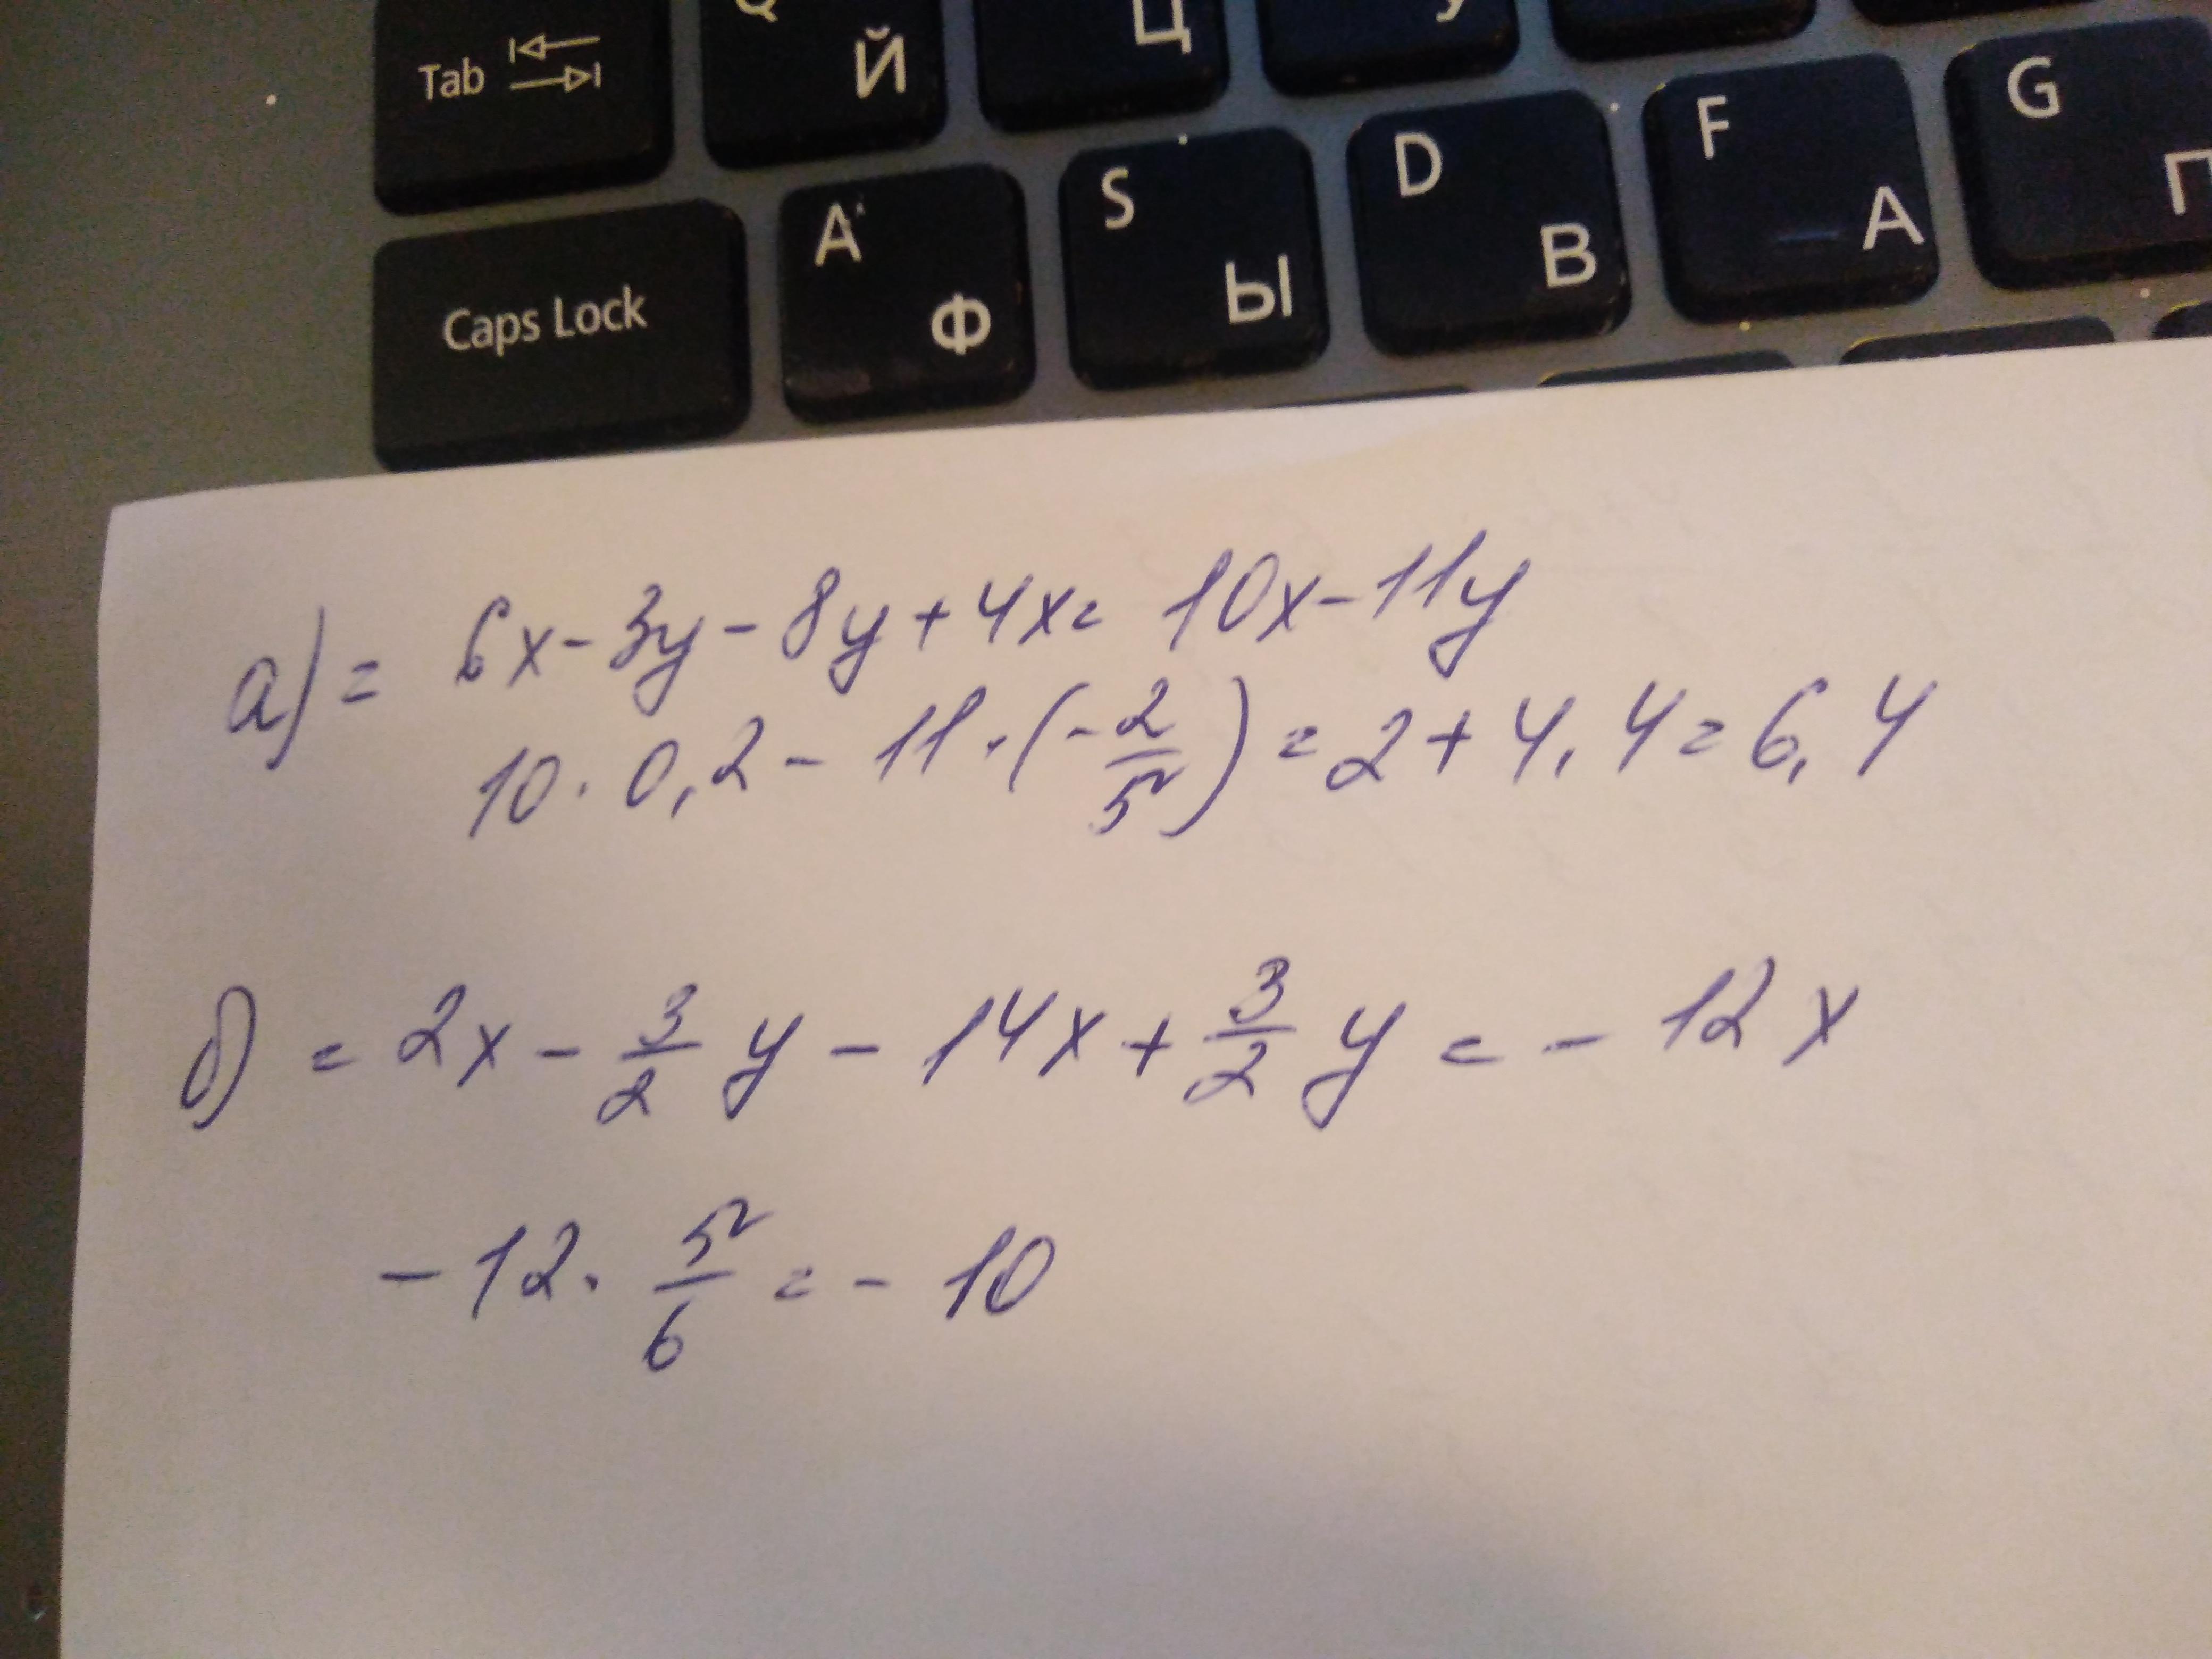 Tab Й Ц
Caps Lock A Ф S Ы D В F А G П
а) = 6x - 3y - 8y + 4x = 10x - 11y
10 · 0,2 - 11 · (- 2/5) = 2 + 4,4 = 6,4
б) = 2x - 3/2 y - 14x + 3/2 y = - 12x
- 12 · 5/6 = - 10